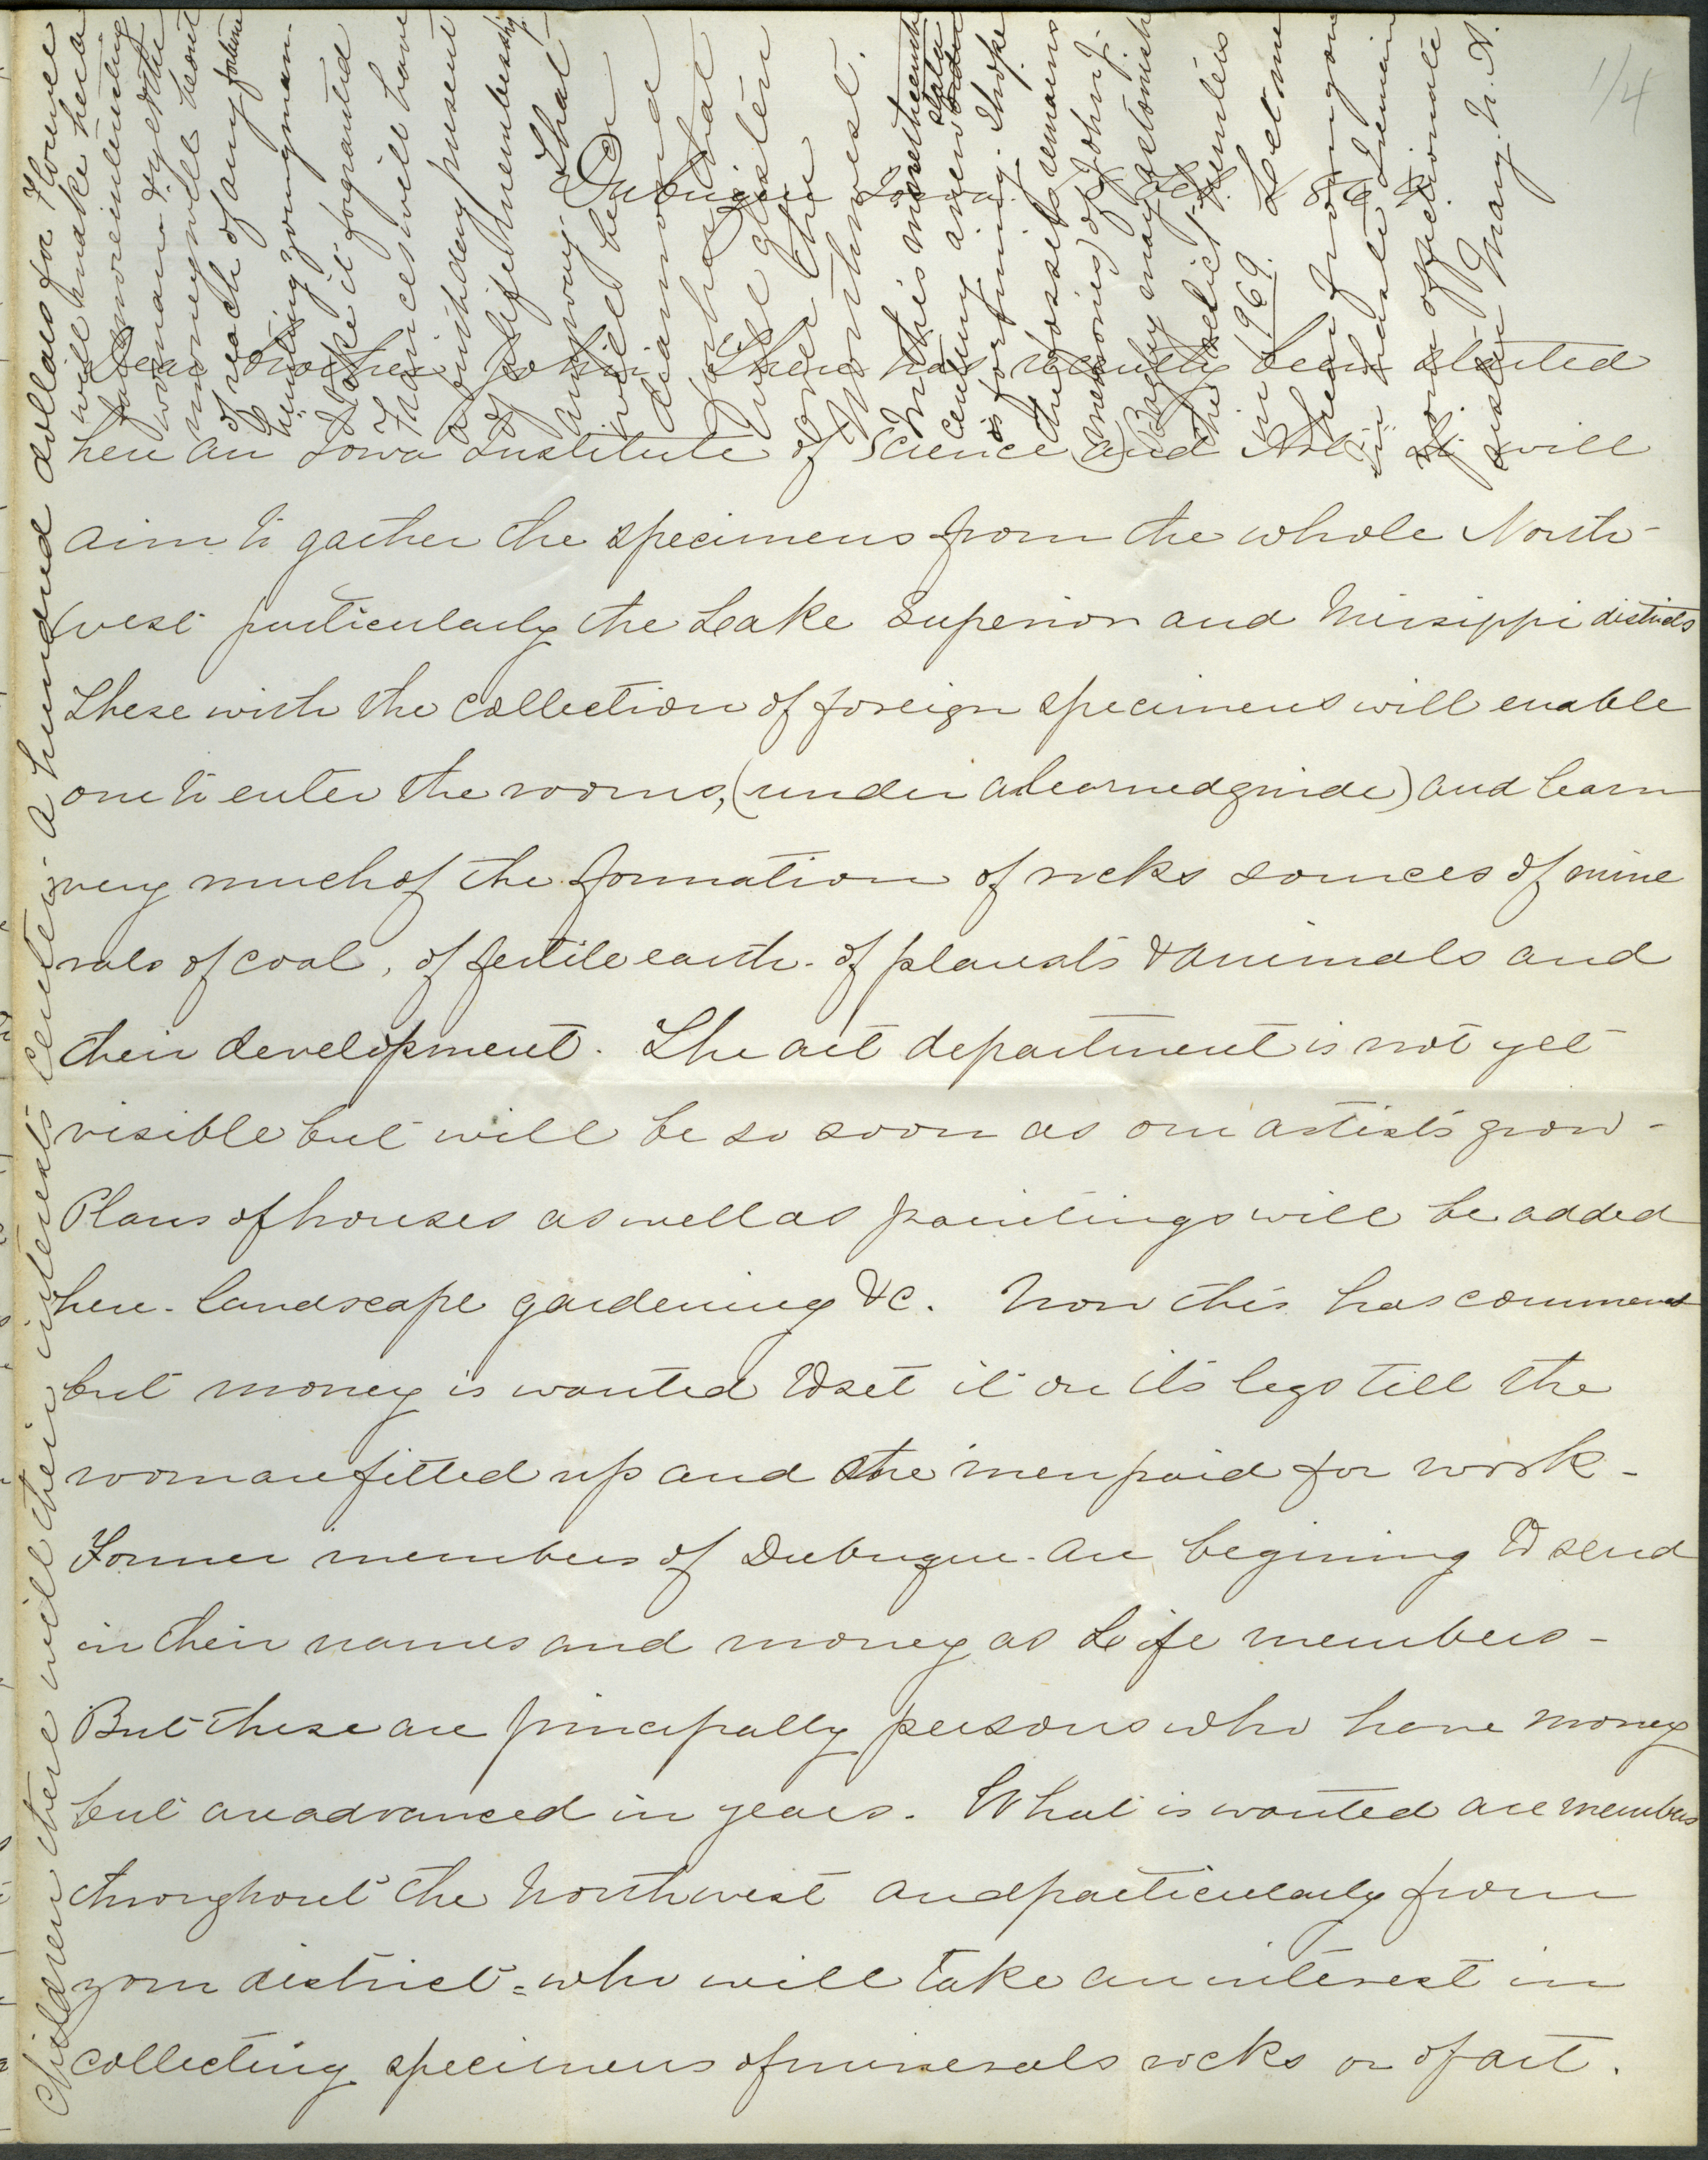 1/4
Dubuque Iowa. Feb. 1869
Dear brother John. There has recently been started
here an Iowa Institute of Science and Art. It will
aim to gather the specimens from the whole North-
west particularly the Lake Superior and Missippi districts
These with the collection of foreign specimens will enable
one to enter the rooms, (under a learned guide) and learn
very much of the formation of rocks sources of mine
rals of coal, of fertile earth. of planats & animals and
their development. The art department is not yet
visible but will be so soon as our artists grow -
Plans of houses as well as paintings will be added
here. landscape gardening &c. Now this has commenced
but money is wanted to set it on its legs till the
rooms are fitted up and the men paid for work -
Former members of Dubuque are begining to send
in their names and money as Life members -
But these are principally persons who have money
but are advanced in years. What is wanted are members
throughout the Northwest and particularly from
your district = who will take an interest in
collecting specimens of minerals rocks or of art.
Children there will their interests center. A hundred dollars for Florence
will make her a
far more interesting
woman & yet the
money will be out
of reach of any fortune
hunting young man.
I take it for granted
Frances will have
a birthday present
of life membership
anyway. That
will be a
diamond
for her that
will glisten
over the
Northwest.
In this
century a new order
is forming. I hope
the bosset remains
(memories) of John J.
Bagley may astonish
the relict hunters
in 1969. Let me
hear from you
Your affectionate
sister Mary N. A.